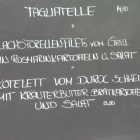 TAGLIATELLE
LACHSFORELLENFILET VOM GRILL
ROSMARINKARTOFFELN U. SALAT
KOTELETT VOM DUROC SCHWEIN
MIT KRÄUTERBUTTER BRATKARTOFFELN
UND SALAT